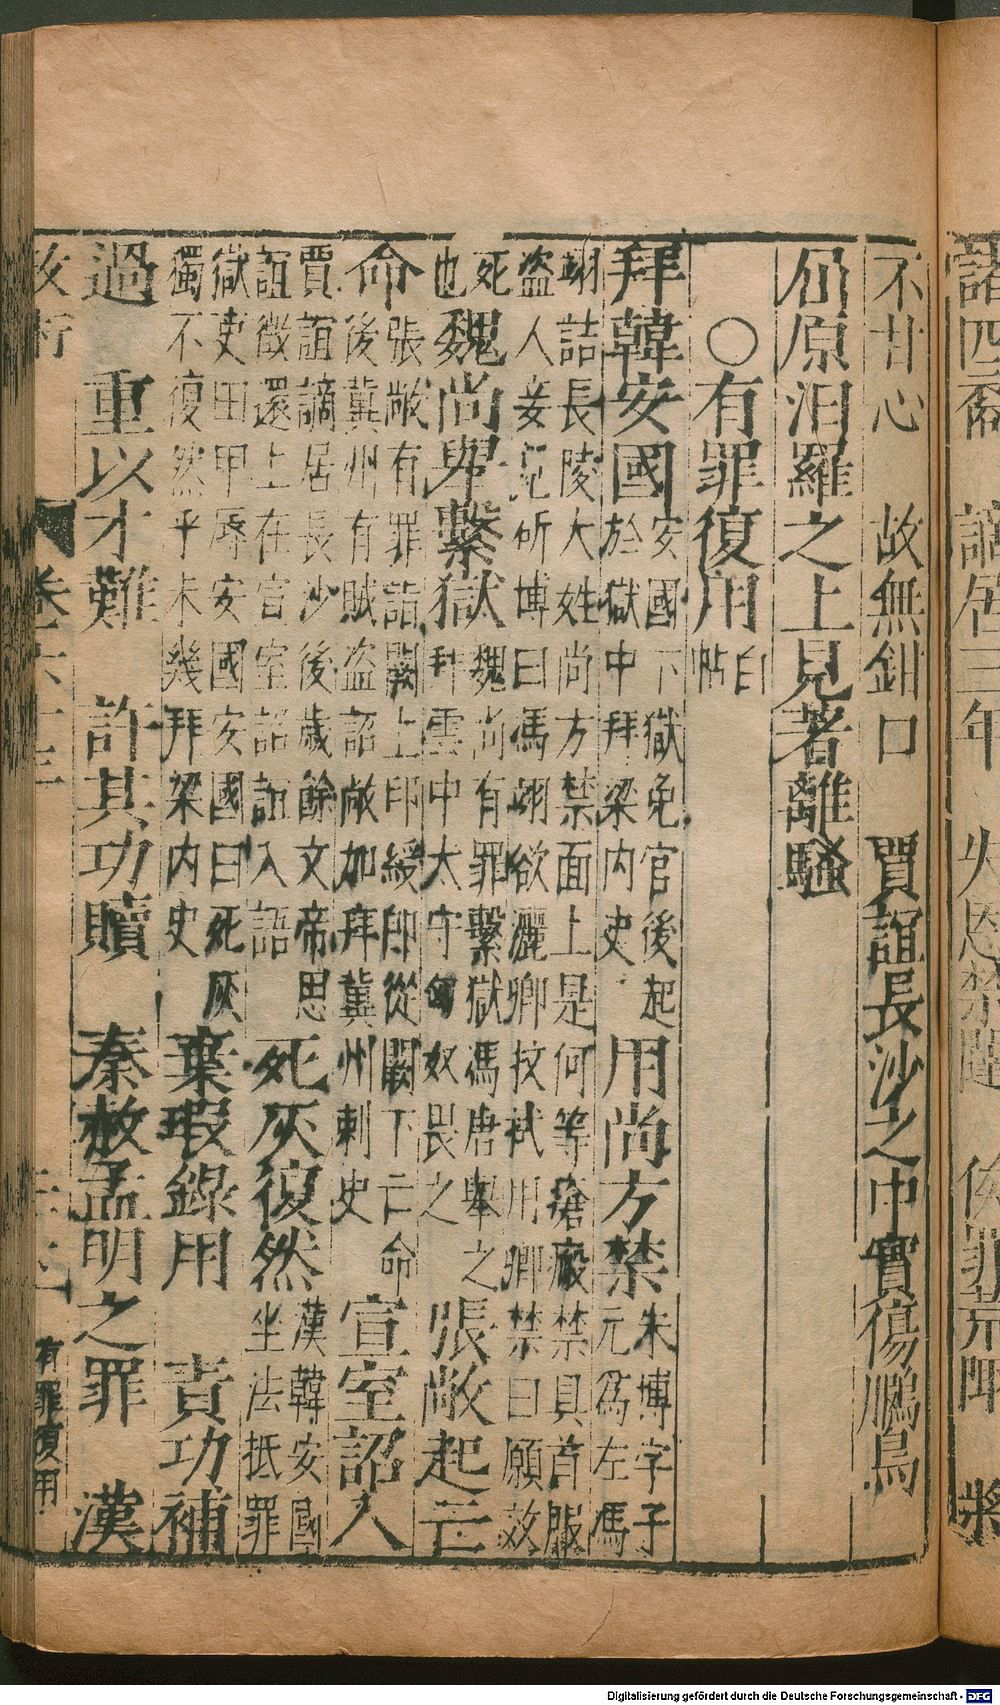 諸四裔　謫居三年
不甘心　故無鉗口　賈誼長沙之中實傷鵬鳥
屈原汨羅之上見著離騷
○有罪復用
白
帖
拜韓安國
安國下獄免官後起
於獄中拜梁内史
用尚方禁
朱博字子
元爲左馮
翊詰長陵大姓尚方禁面上是何等瘡瘢禁具首服
盜人妾見斫博曰馮翊欲灑卿抆拭用卿禁曰願效
死
也
魏尚卑繫獄
魏尚有罪繫獄馮唐舉之
拜雲中太守匈奴畏之
張敞起亡
命
張敞有罪詣闕上印綬即從闕下亡命
後冀州有賊盜詔敞加拜冀州刺史
宣室詔入
賈誼謫居長沙後歲餘文帝思
誼徵還上在宣室詔誼入語
死灰復然
漢韓安國
坐法抵罪
獄吏田甲辱安國安國曰死灰
獨不復然乎未幾拜梁内史
棄瑕錄用　責功補
過　重以才難　許其功贖　秦赦孟明之罪　漢
卷六十三
有罪復用
Digitalisierung gefördert durch die Deutsche Forschungsgemeinschaft - DFG